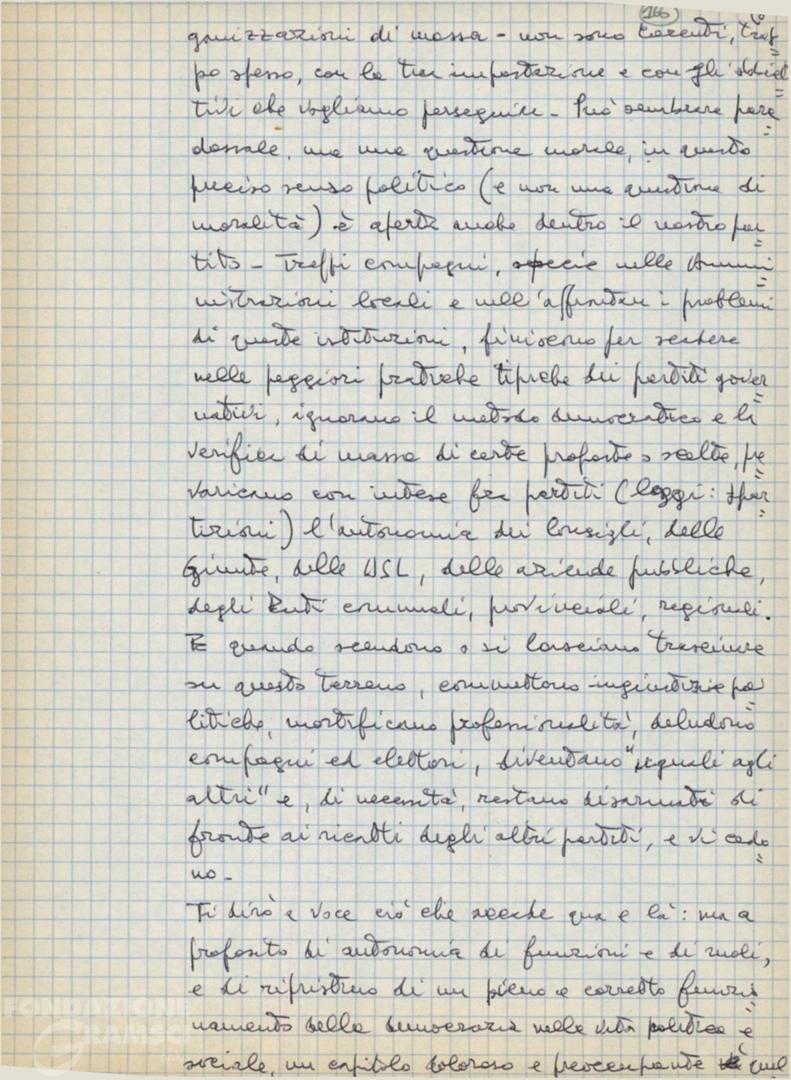 166
ganizzazioni di massa - non sono coerenti, trop=
po spesso, con la tua impostazione e con gli obiet
tivi che vogliamo perseguire - Può sembrare para=
dossale, ma una questione morale, in questo
preciso senso politico (e non una questione di
moralità) è aperta anche dentro il nostro par=
tito - Troppi compagni, specie nelle Ammi=
nistrazioni locali e nell'affrontare i problemi
di queste istituzioni, finiscono per scadere
nelle peggiori pratiche tipiche dei partiti gover=
nativi, ignorano il metodo democratico e la
verifica di massa di certe proposte o scelte, pre=
varicano con intese fra partiti (leggi: spar=
tizioni) l'autonomia dei Consigli, delle
Giunte, delle USL, delle aziende pubbliche,
degli Enti comunali, provinciali, regionali.
E quando scendono o si lasciano trascinare
su questo terreno, commettono ingiustizie po=
litiche, mortificano professionalità, deludono
compagni ed elettori, diventano "eguali agli
altri" e, di necessità, restano disarmati di
fronte ai ricatti degli altri partiti, e vi cedo=
no -
Ti dirò a voce ciò che accade qua e là: ma a
proposito di autonomia di funzioni e di ruoli,
e di ripristino di un pieno e corretto funzio=
namento della democrazia nella vita politica e
sociale, un capitolo doloroso e preoccupante è quel
FONDAZIONE
GRAMSCI